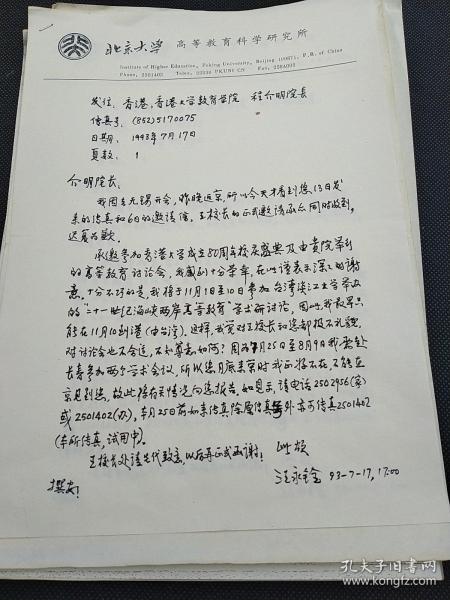 北京大学 高等教育科学研究所
Institute of Higher Education, Peking University, Beijing 100871, P.R. of China
Phone, 2501402 Telex, 22239 PKUNI CN Fax, 2564095
发往: 香港, 香港大学教育学院 程介明院长
传真号: (852)5170075
日期: 1993年7月17日
页数: 1
介明院长,
我因去无锡开会, 昨晚返京, 所以今天才看到您13日发
来的传真和6日的邀请信, 王校长的正式邀请函亦同时收到,
迟复为歉。
承邀参加香港大学成立80周年校庆盛典及由贵院举行
的高等教育讨论会, 我感到十分荣幸, 在此谨表示深深的谢
意。十分不巧的是, 我将于11月1日至10日参加台湾淡江大学举办
的"二十一世纪海峡两岸高等教育"学术研讨论, 因此, 我最早只
能在11月10到港(由台湾)。这样, 我觉对王校长和您都极不礼貌,
对讨论会也不合适, 不知尊意如何? 因为7月25日至8月9日我要赴
长春参加两个学术会议, 所以您月底来京时我正好不在, 不能在
京见到您, 故此将有关情况向您报告。如见示, 请电话2502956(家)
或2501402(办), 本月25日前如来传真除原传真号外亦可传2501402
(本所传真, 试用中)。
王校长处请先代致意, 以后再正式函谢! 此颂
撰安!
汪永铨 93-7-17, 17:00
孔夫子旧书网
www.kongfz.com